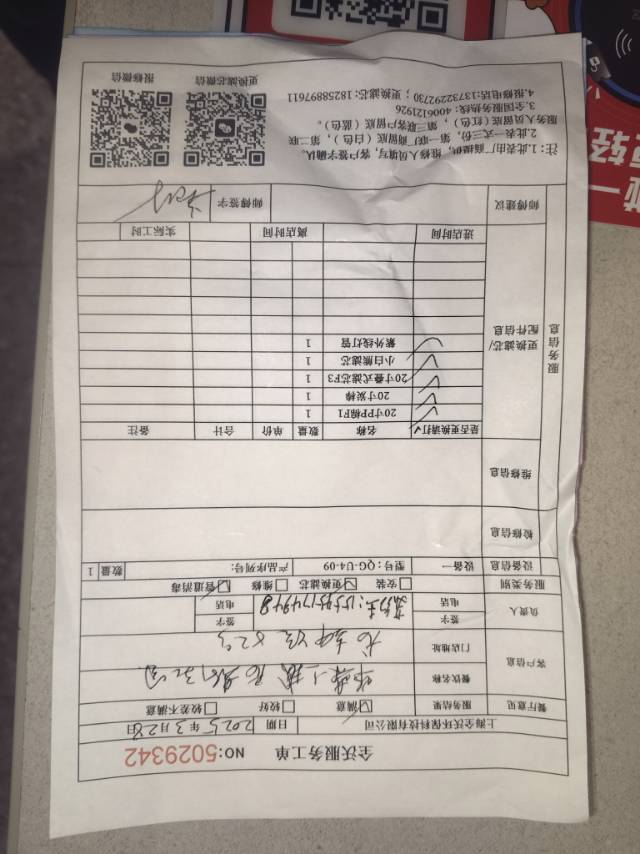 全沃服务工单 NO:5029342
上海全沃环保科技有限公司 日期 2025年3月2日
餐厅意见 服务结果 ☑满意 □较好 □较差不满意
客户信息 餐饮名称
门店地址
负责人 签字 签字
电话 电话
服务类别 □安装 ☑更换滤芯 □维修 ☑管道消毒
设备信息 设备一 型号：QG-U4-09 产品序列号： 数量 1
检修信息
维修信息
服务信息
更换滤芯/配件信息
是否更换请打√ 名称 数量 单价 合计 备注
√ 20寸PP棉F1 1
√ 20寸炭棒 1
√ 20寸叠式滤芯F3 1
√ 小白熊滤芯 1
√ 紫外线灯管 1
进店时间 离店时间 实际工时
师傅建议 师傅签字
注：1.此表由厂商提供，维修人员填写，客户签字确认。
2.此表一式三份，第一联厂商留底（白色），第二联
服务人员留底（红色），第三联客户留底（蓝色）。
3.全国服务热线：4006121926
4.报修电话:13732292730；更换滤芯：18258897611
更换滤芯微信 报修微信